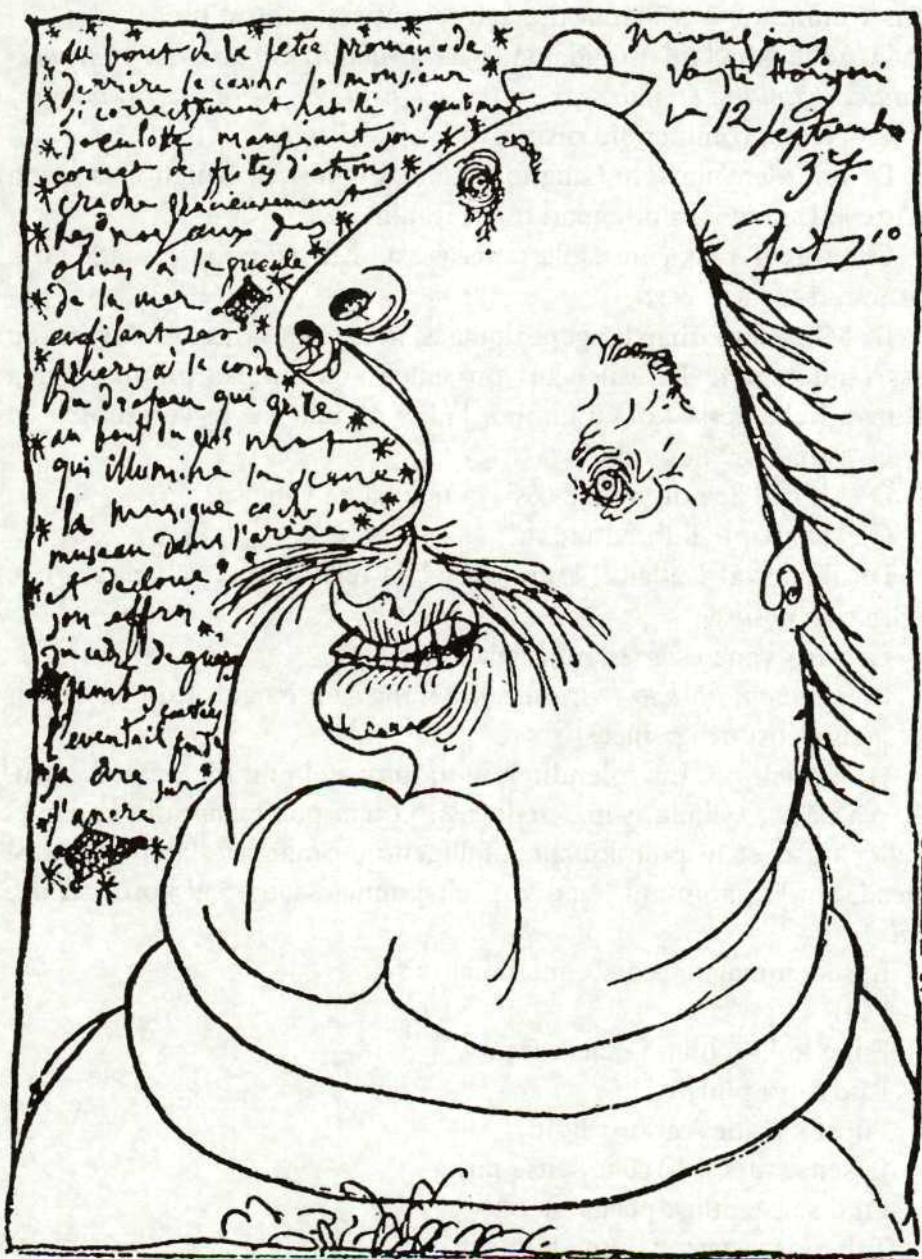 au bout de la jetée promenade
derrière le casino le monsieur
si correctement habillé si gentiment
déculotté mangeant son
cornet de frites d'étrons
crache gracieusement
les noyaux des
olives à la gueule
de la mer
enfilant ses
prières à la corde
du drapeau qui grille
au bout du gros mot
qui illumine la scène
la musique cache son
museau dans l'arène
et décloue
son effroi
du cadre de guêpes
jambes écartées
l'éventail fond
sa cire sur
l'ancre
Mougins
Vaste Horizon
le 12 septembre
37
Picasso